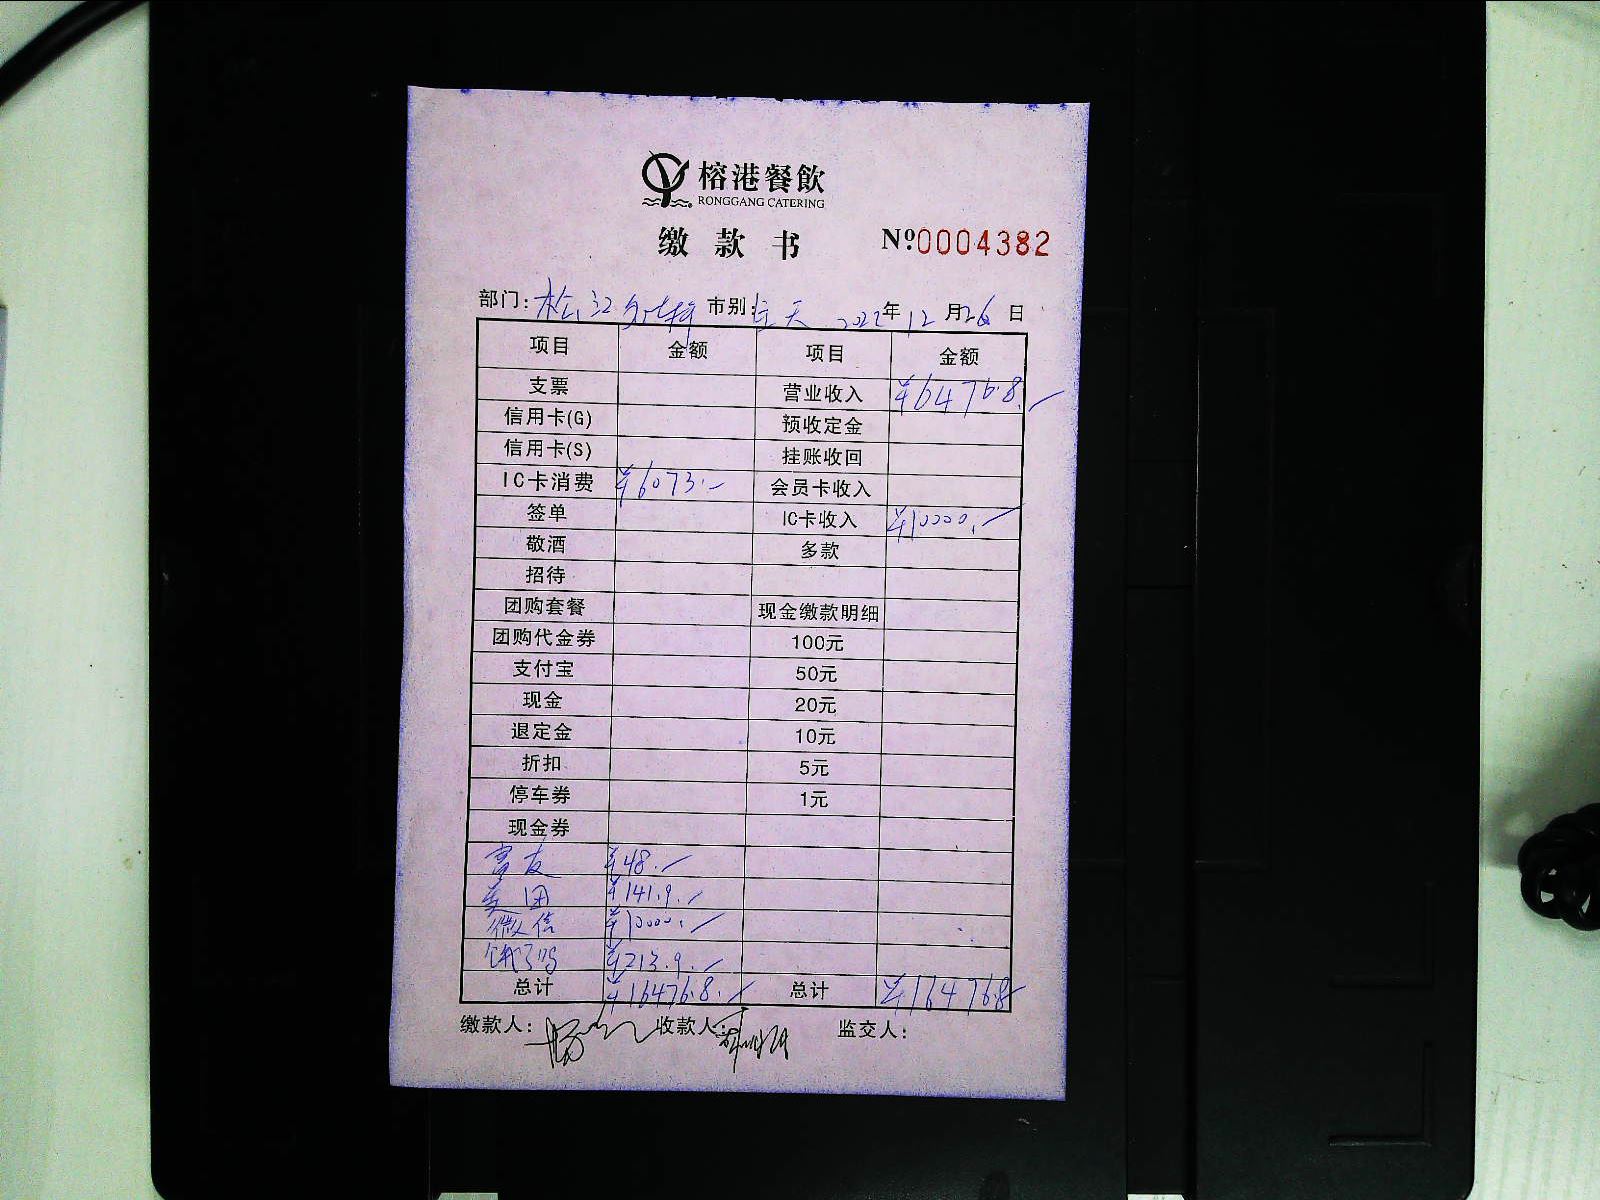 榕港餐飲
RONGGANG CATERING
缴款书 №0004382
部门: 松江 市别: 全天 2022年12月26日
项目 金额 项目 金额
支票 营业收入 ¥6476.8.
信用卡(G) 预收定金
信用卡(S) 挂账收回
IC卡消费 ¥6073.- 会员卡收入
签单 IC卡收入 ¥10000.-
敬酒 多款
招待
团购套餐 现金缴款明细
团购代金券 100元
支付宝 50元
现金 20元
退定金 10元
折扣 5元
停车券 1元
现金券
富友 ¥48.-
美团 ¥141.9.-
微信 ¥10000.-
饿了吗 ¥213.9.-
总计 ¥16476.8.- 总计 ¥16476.8
缴款人: 收款人: 监交人: